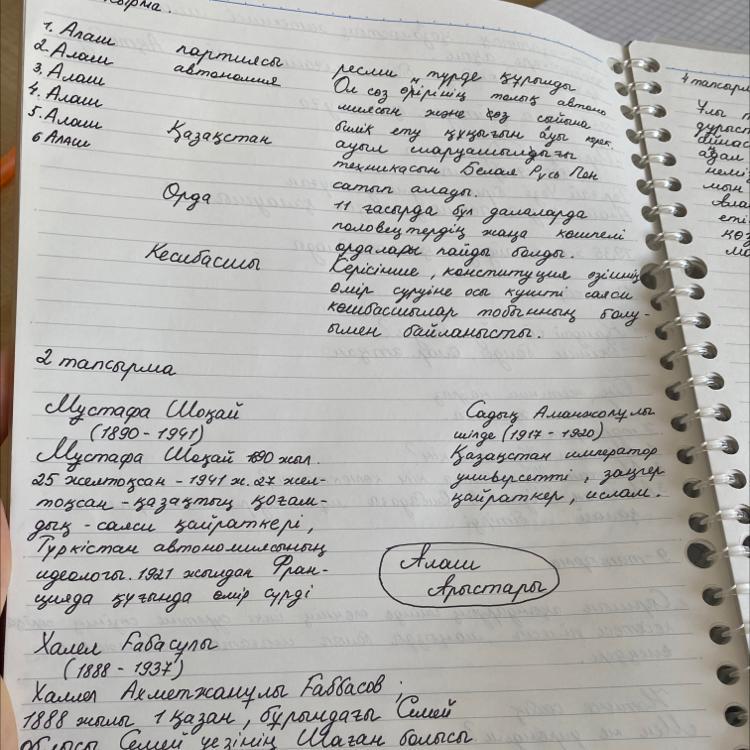 сырма.
1. Алаш
2. Алаш
3. Алаш
4. Алаш
5. Алаш
6 Алаш
партиясы
автономия
Қазақстан
Орда
Кесибасшы
ресми түрде құрынды
Ол соз өрірінің толық автоно
миясын және сөз сайына
билік ету құқығын ауы керек,
ауыл шаруашылдығы
техникасын Белая Русь Пен
сатып алады.
11 ғасырда бұл далаларда
половецтердің жаңа көшпелі
ордалары пайды болды.
Керісінше, конституция өзінің
өмір сүруіне осы күшті саяси
көшбасшылар тобынның болу-
ымен байланысты.
2 тапсырма
Мустафа Шоқай
(1890 - 1941)
Мустафа Шоқай 1890 жыл.
25 желтоқсан - 1941 ж. 27 жел-
тоқсан - қазақтың қоғам-
дық - саяси қайраткері,
Түркістан автономиясының
идеологы. 1921 жылдан Фран-
цияда қуғында өмір сүрді
Садық Аманжолұлы
шілде (1917 - 1920)
Қазақстан император
универсетті, заңгер
қайраткер, ислам.
Алаш
Арыстары
Халел Ғабасұлы
(1888 - 1937)
Халлел Ахметжанұлы Ғаббасов;
1888 жылы 1 қазан, бұрындағы Семей
облысы Семей уезінің Шаған болысы
4 тапсырм
Ұлы
дұрыст